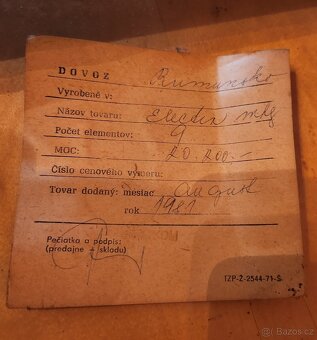 DOVOZ Rumunsko
Vyrobené v:
Názov tovaru:
Počet elementov: 9
MOC: 20.200.-
Číslo cenového výmeru:
Tovar dodaný: mesiac August
rok 1981
Pečiatka a podpis:
(predajne – skladu)
TZP-Ž-2544-71-Š
Bazos.cz